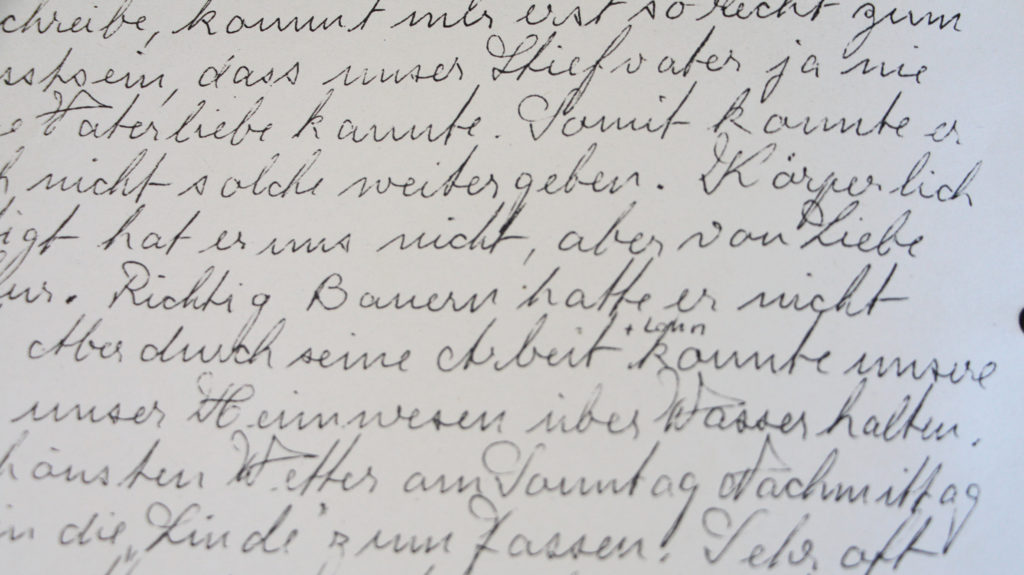 chreibe, kommt mir erst so recht zum
sstsein, dass unser Stiefvater ja nie
e Vaterliebe kannte. Somit konnte er
h nicht solche weitergeben. Körperlich
igt hat er uns nicht, aber von Liebe
ur. Richtig Bauern hatte er nicht
Aber durch seine Arbeit + Lohn konnte unsere
unser Heimwesen über Wasser halten.
hönsten Wetter am Sonntag Nachmittag
in die „Linde" zum Jassen. Sehr oft